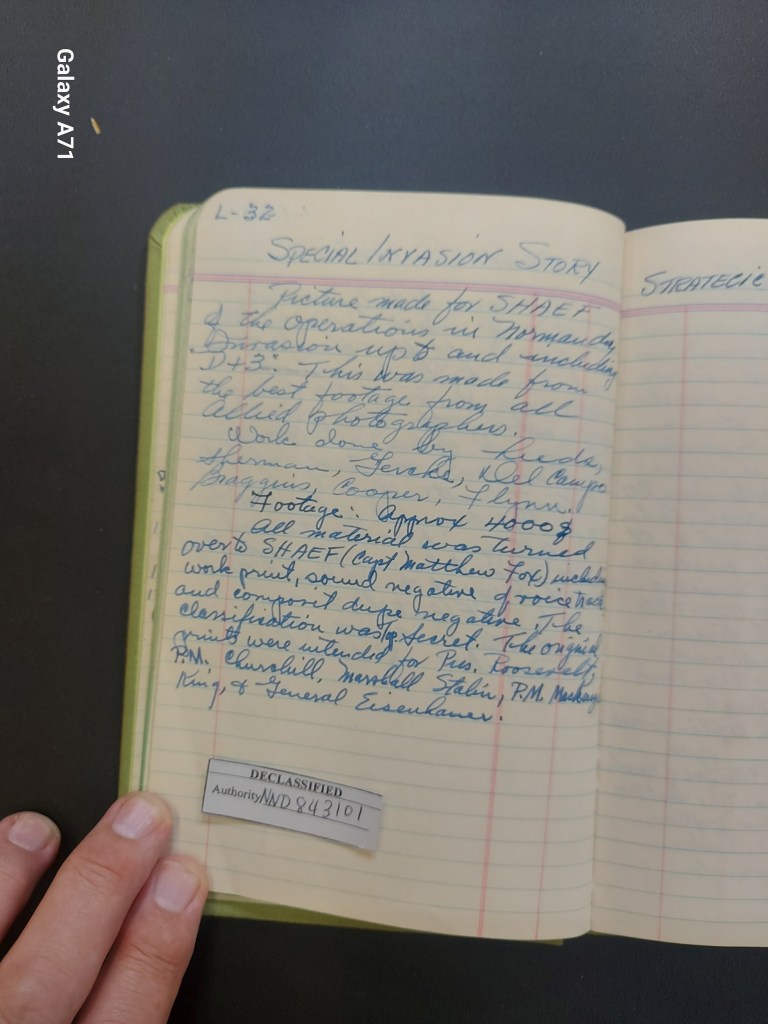 Galaxy A71
L-32
SPECIAL INVASION STORY
STRATEGIC
Picture made for SHAEF
of the operations in Normandy
Invasion up to and including
D+3. This was made from
the best footage from all
Allied photographers.
Work done by
Sherman, Del Campo
Braggins, Cooper, Flynn.
Footage: Approx 4000
All material was turned
over to SHAEF (Capt Matthew Fox) includ
work print, sound negative of voice track
and composit dupe negative. The
classification was secret. The original
prints were intended for Pres. Roosevelt,
P.M. Churchill, Marshall Stalin, P.M. Mackenzie
King, & General Eisenhower.
DECLASSIFIED
Authority NND 843101